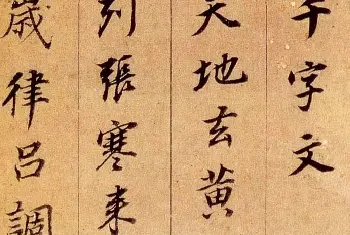 千字文
天地玄黄
列張寒来
歳律吕調